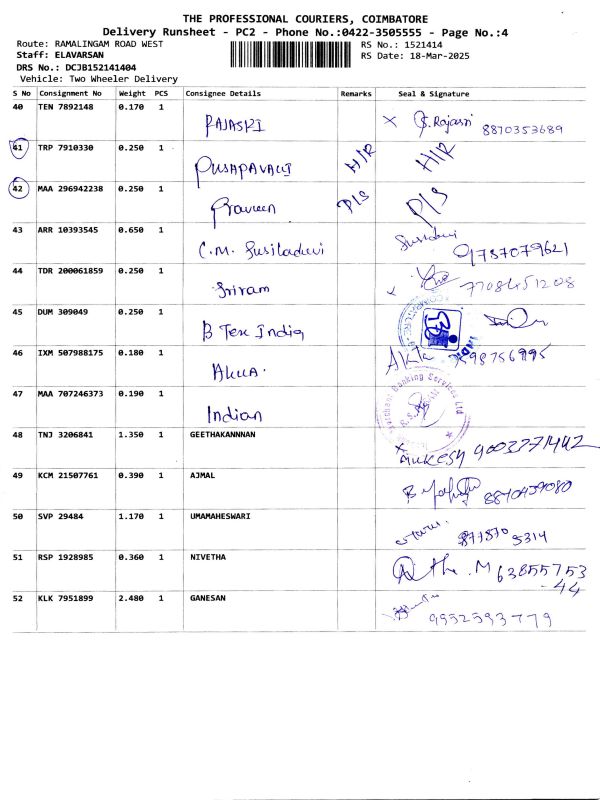 THE PROFESSIONAL COURIERS, COIMBATORE
Delivery Runsheet - PC2 - Phone No.:0422-3505555 - Page No.:4
Route: RAMALINGAM ROAD WEST RS No.: 1521414
Staff: ELAVARSAN RS Date: 18-Mar-2025
DRS No.: DCJB152141404
Vehicle: Two Wheeler Delivery
S No Consignment No Weight PCS Consignee Details Remarks Seal & Signature
40 TEN 7892148 0.170 1 RAJASRI X S. Rajasri 8870353689
41 TRP 7910330 0.250 1 PUSAPAVALLI H/R H/R
42 MAA 296942238 0.250 1 Praveen P/S P/S
43 ARR 10393545 0.650 1 C.M. Susiladevi 9787079621
44 TDR 200061859 0.250 1 Sriram X 7708451208
45 DUM 309049 0.250 1 B Tex India
46 IXM 507988175 0.180 1
47 MAA 707246373 0.190 1 Indian
48 TNJ 3206841 1.350 1 GEETHAKANNNAN X
49 KCM 21507761 0.390 1 AJMAL
50 SVP 29484 1.170 1 UMAMAHESWARI
51 RSP 1928985 0.360 1 NIVETHA M 63855753
44
52 KLK 7951899 2.480 1 GANESAN 9952593779